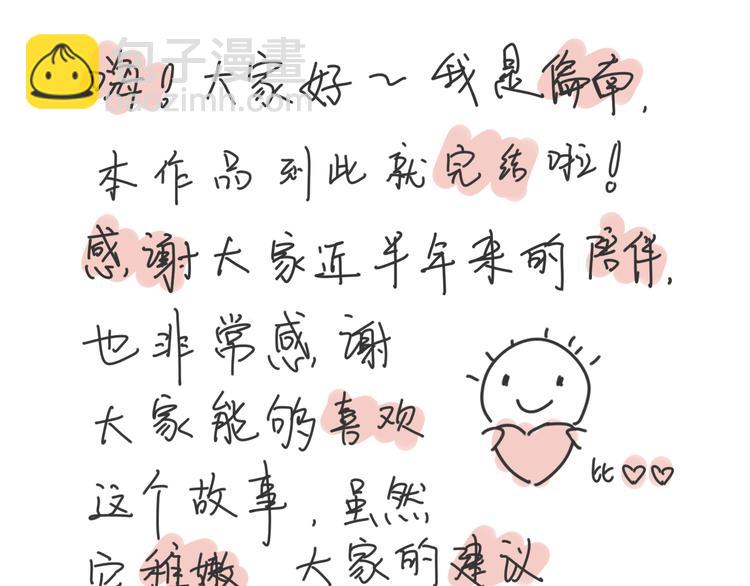 嗨！大家好～我是偏南，
包子漫畫
baozimh.com
本作品到此就完结啦！
感谢大家近半年来的陪伴，
也非常感谢
大家能够喜欢
比♡♡
这个故事，虽然
它稚嫩 大家的建议